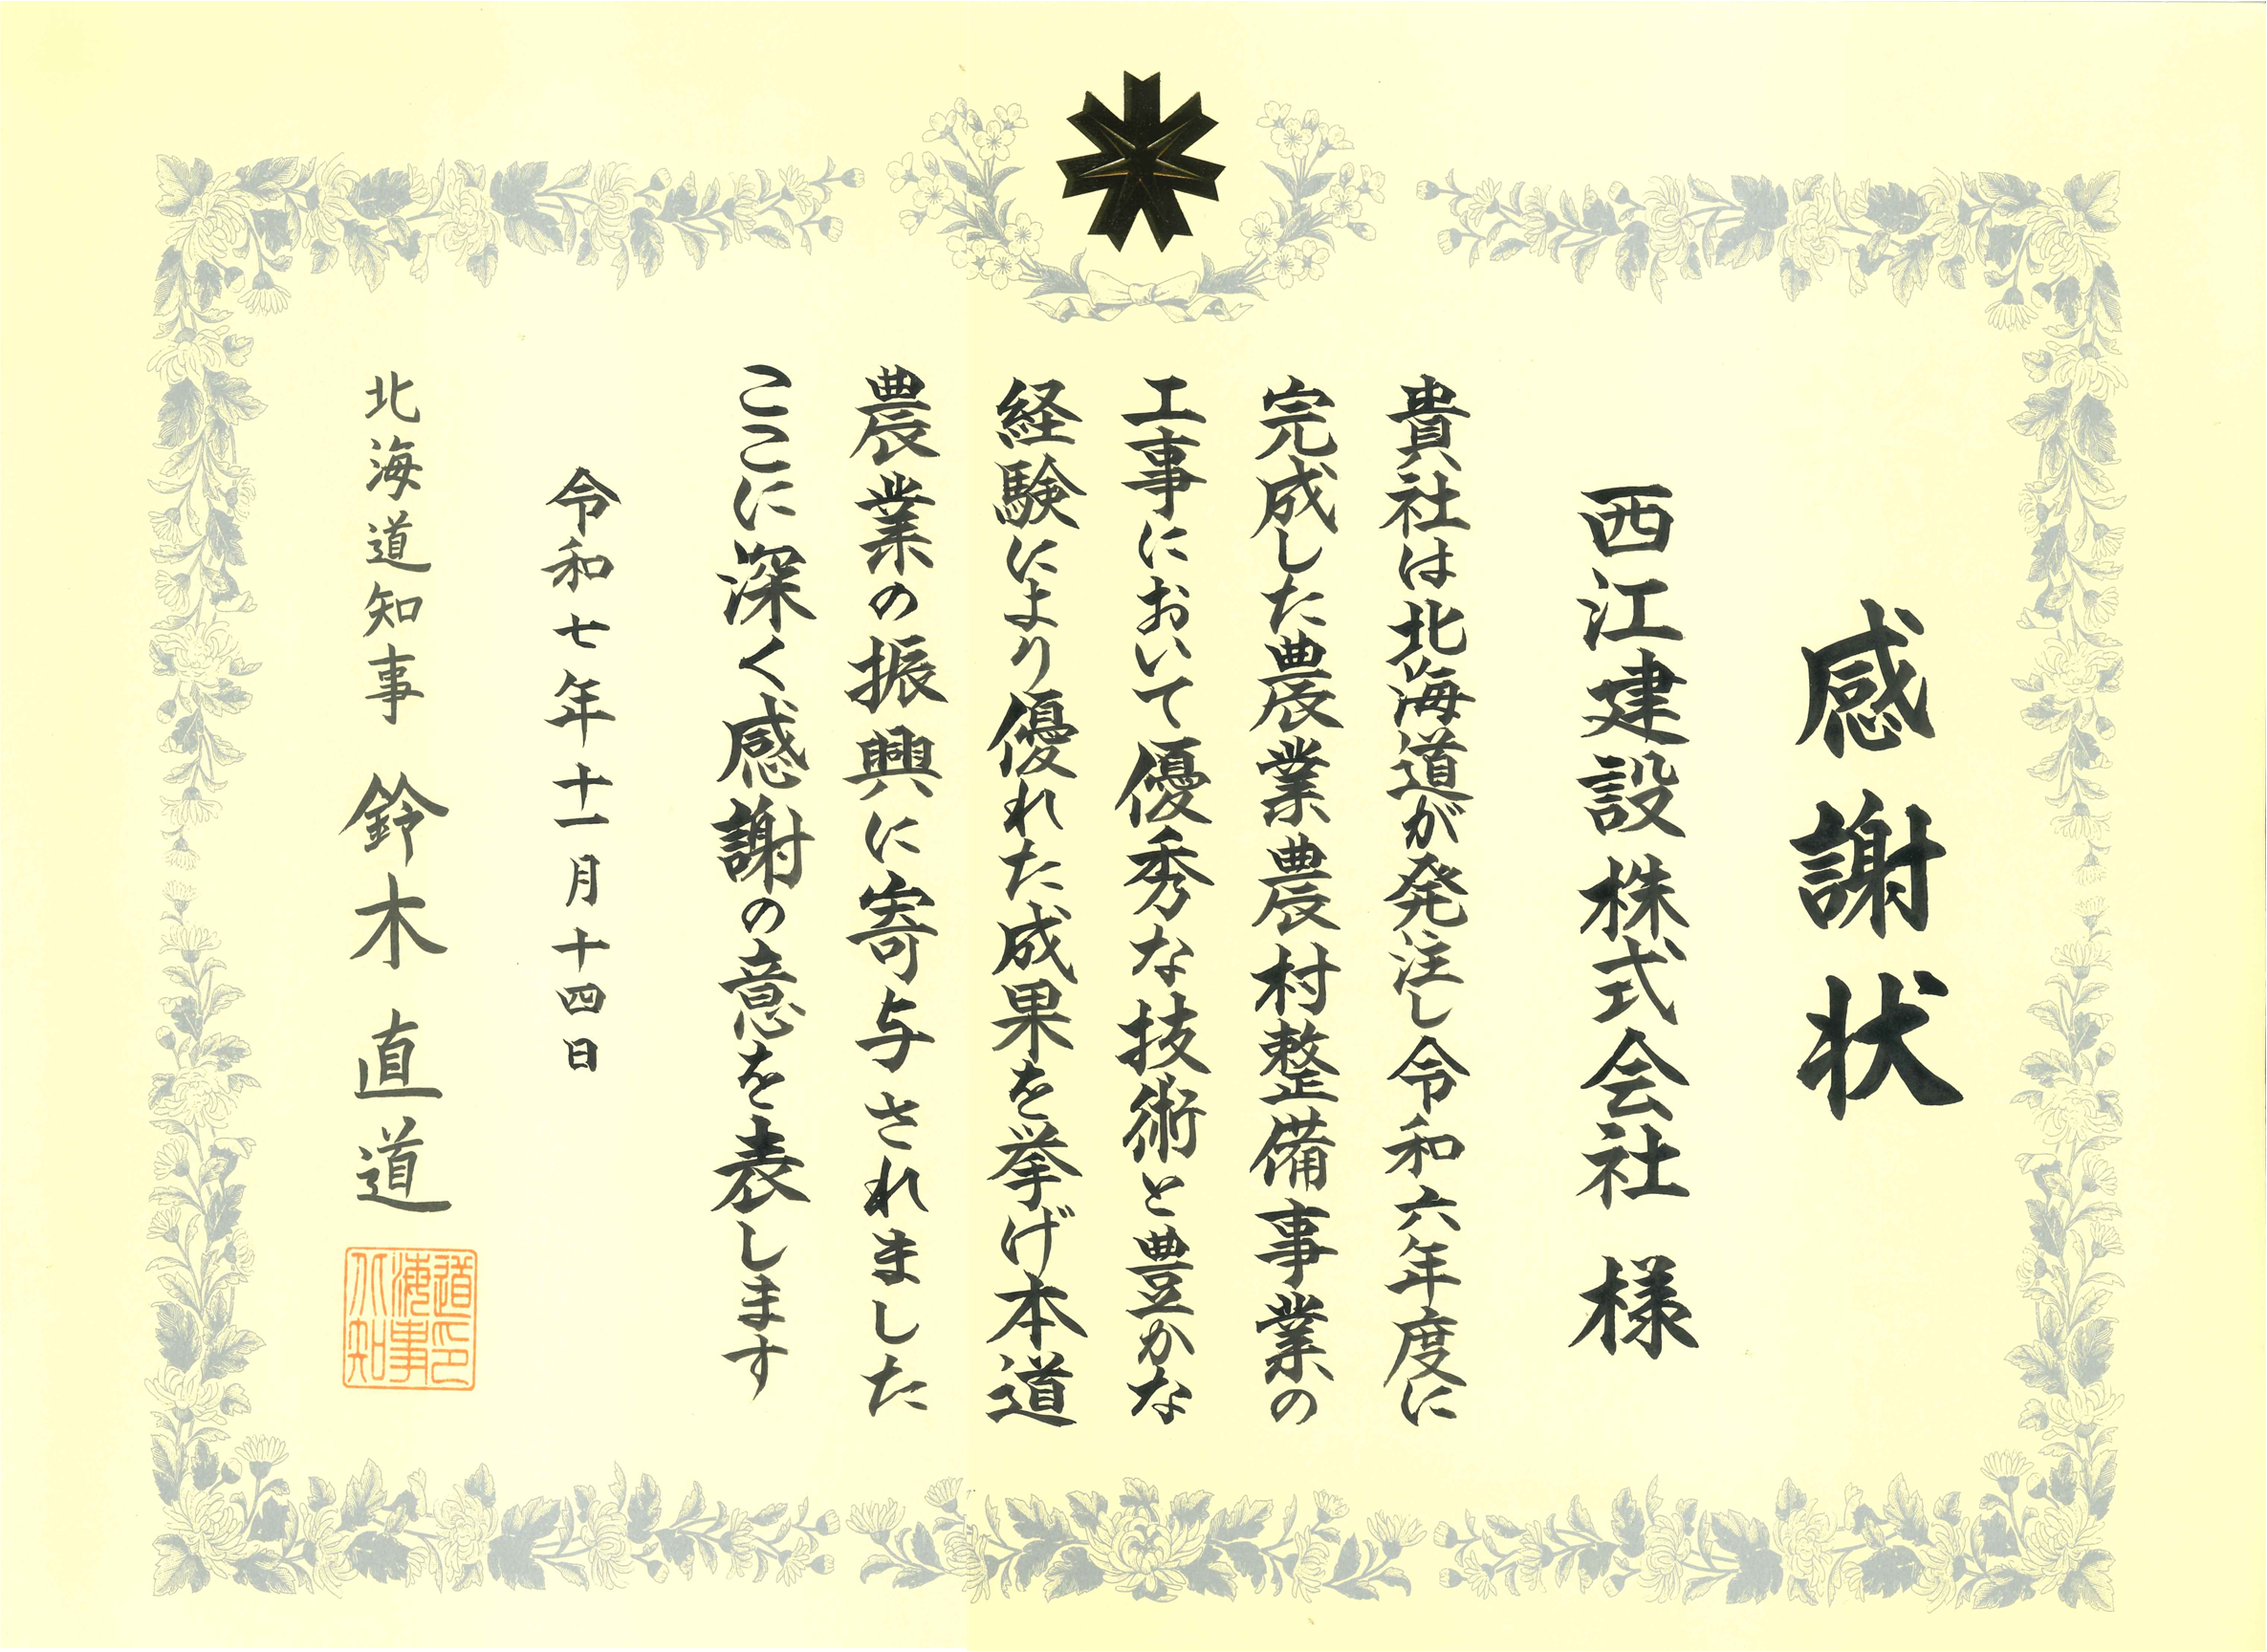 感謝状
西江建設株式会社 様
貴社は北海道が発注し令和六年度に
完成した農業農村整備事業の
工事において優秀な技術と豊かな
経験により優れた成果を挙げ本道
農業の振興に寄与されました
ここに深く感謝の意を表します
令和七年十一月十四日
北海道知事 鈴木直道
北海道知事印